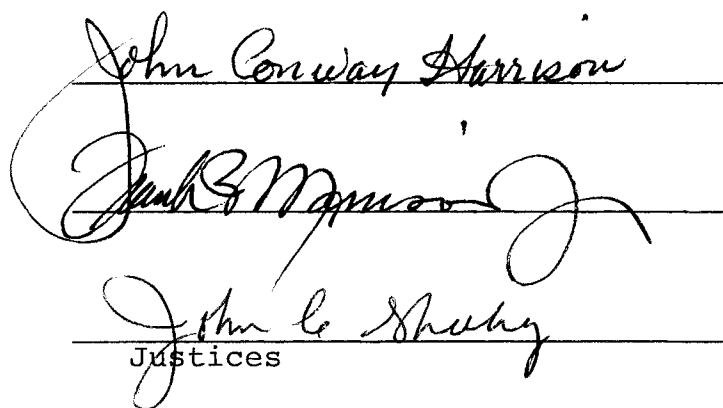 John Conway Harrison
Frank B. Morrison Jr
John C Sheehy
Justices